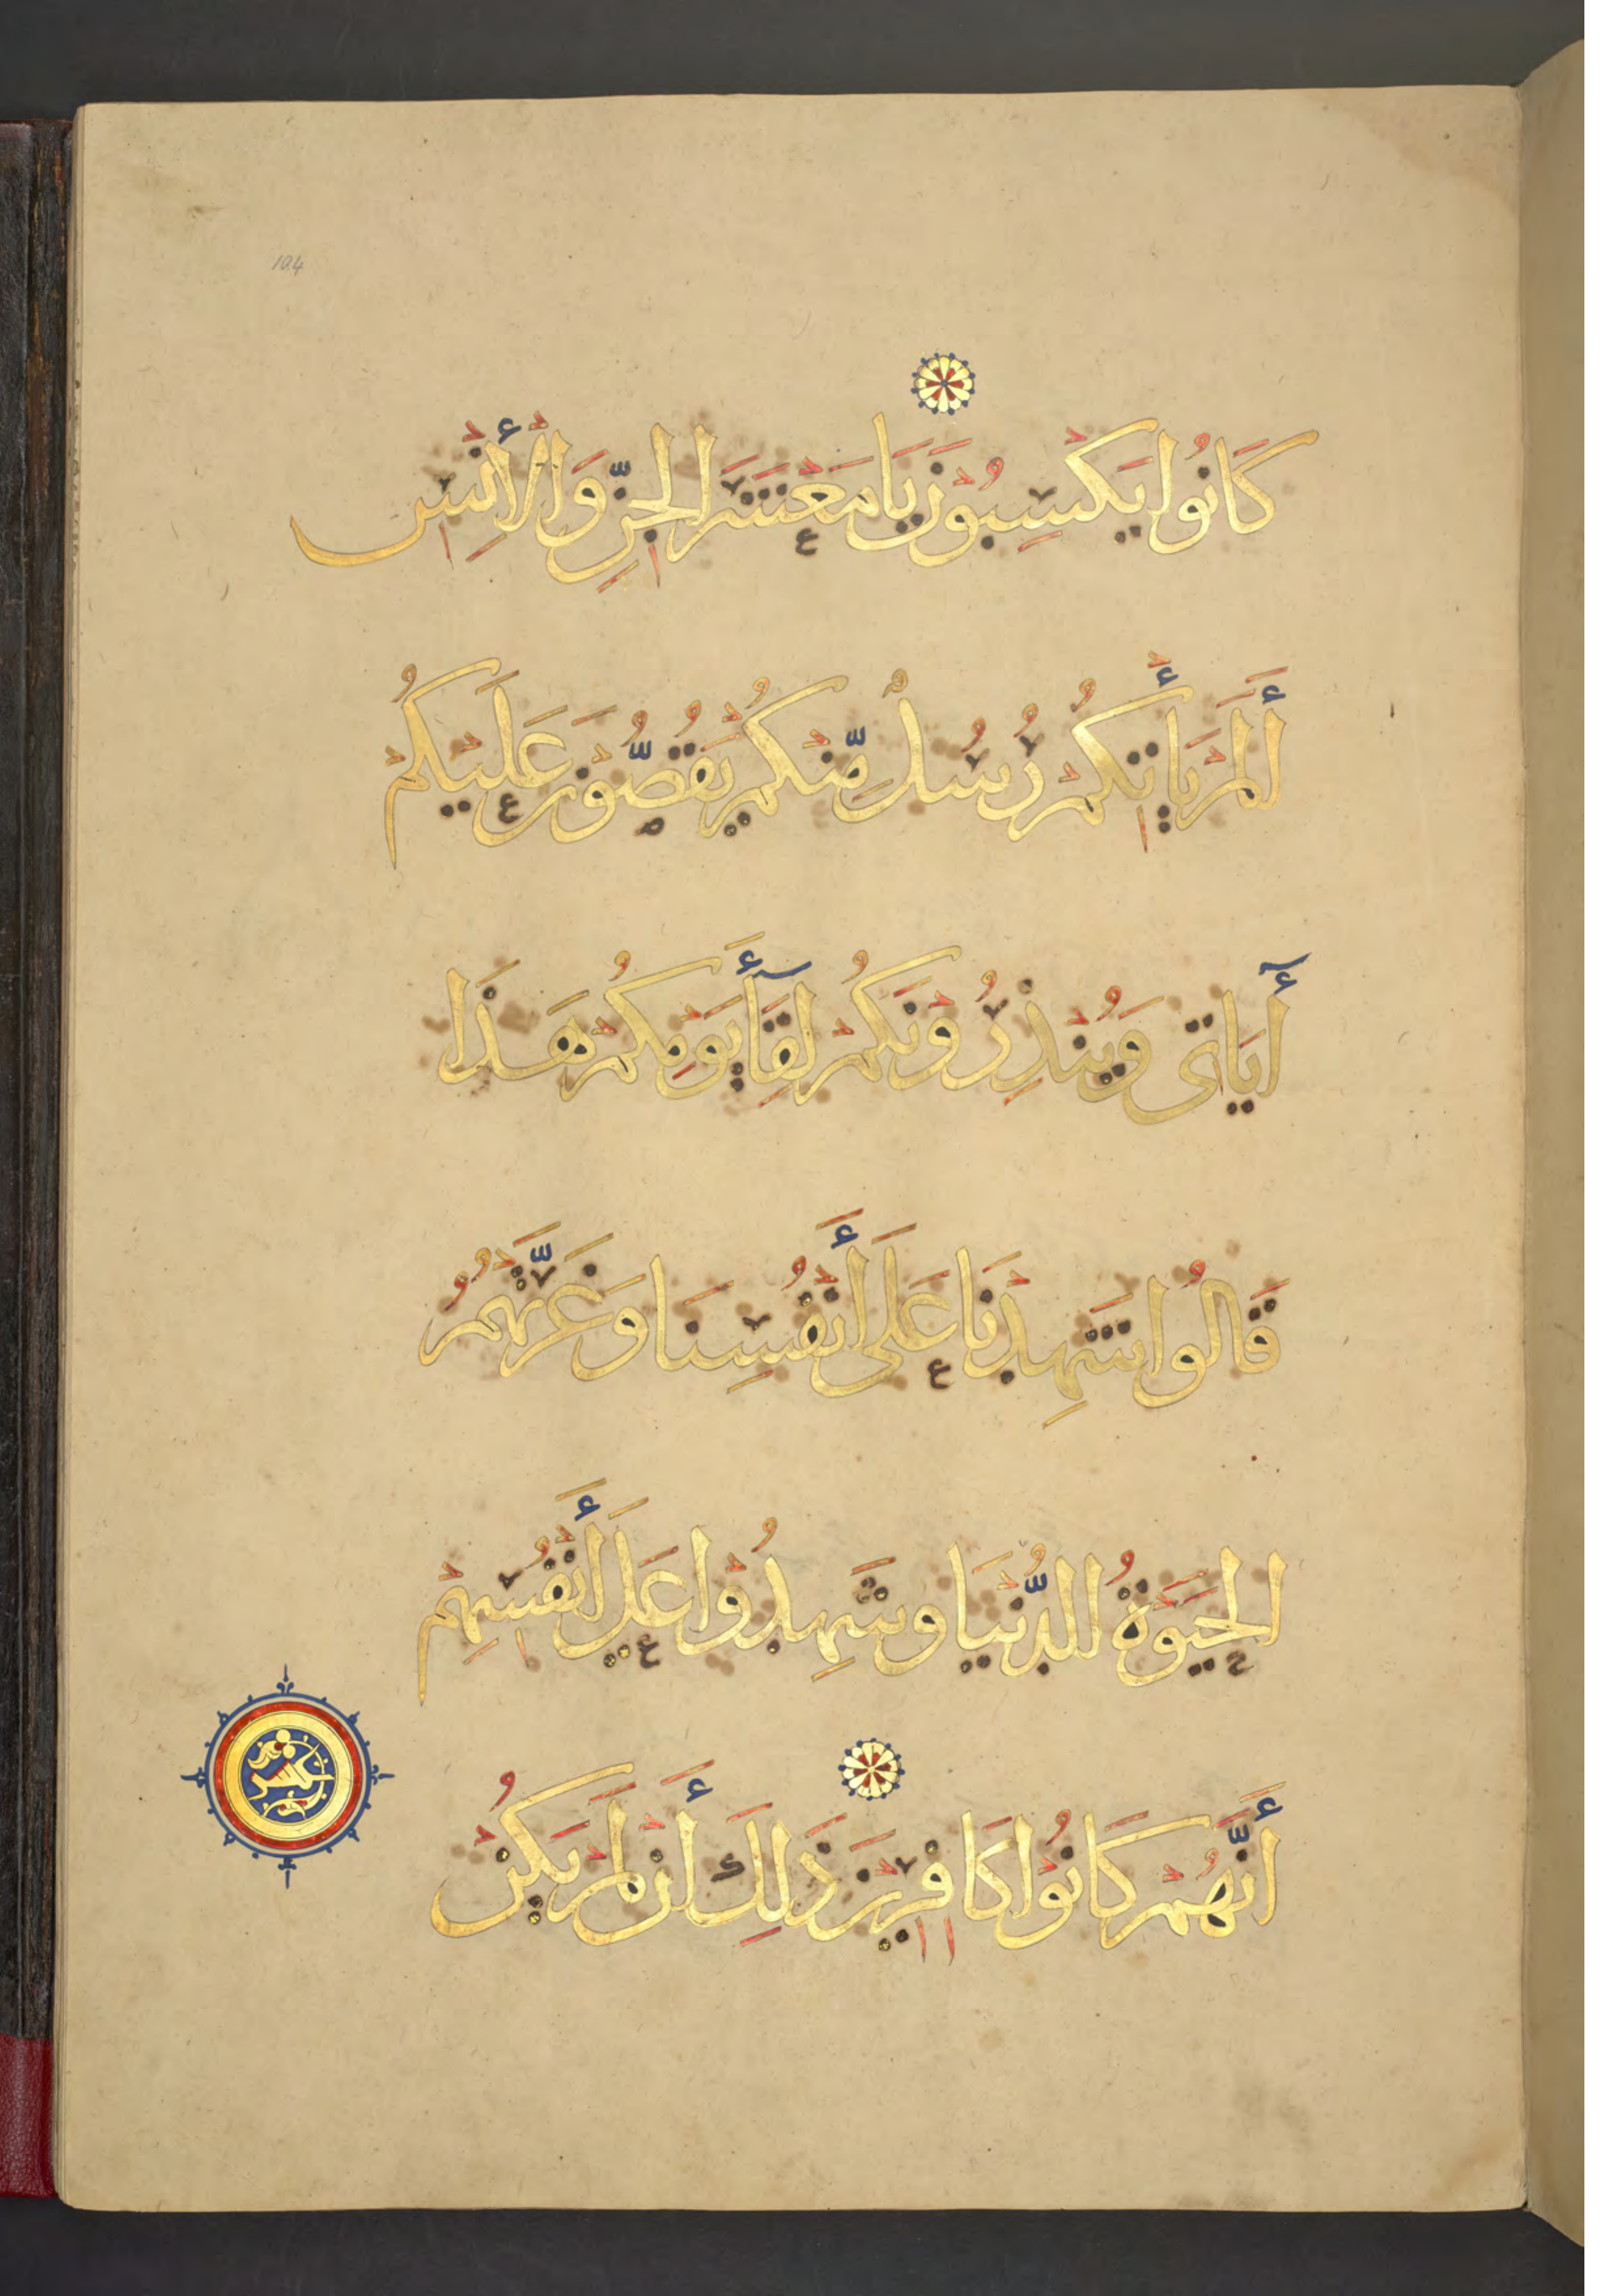 104
كَانُوا يَكْسِبُونَ يَا مَعْشَرَ الْجِنِّ وَالْأِنْسِ
أَلَمْ يَأْتِكُمْ رُسُلٌ مِّنْكُمْ يَقُصُّونَ عَلَيْكُمْ
أيَاتِى وَيُنْذِرُونَكُمْ لِقَآءَ يَوْمِكُمْ هَذَا
قَالُوا شَهِدْنَا عَلَى أَنْفُسِنَا وَغَرَّتْهُمُ
الْحَيَوٰةُ الدُّنْيَا وَشَهِدُوا عَلَى أَنْفُسِهِمْ
أَنَّهُمْ كَانُوا كَافِرِينَ ذَلِكَ أَنْ لَمْ يَكُنْ
عشر